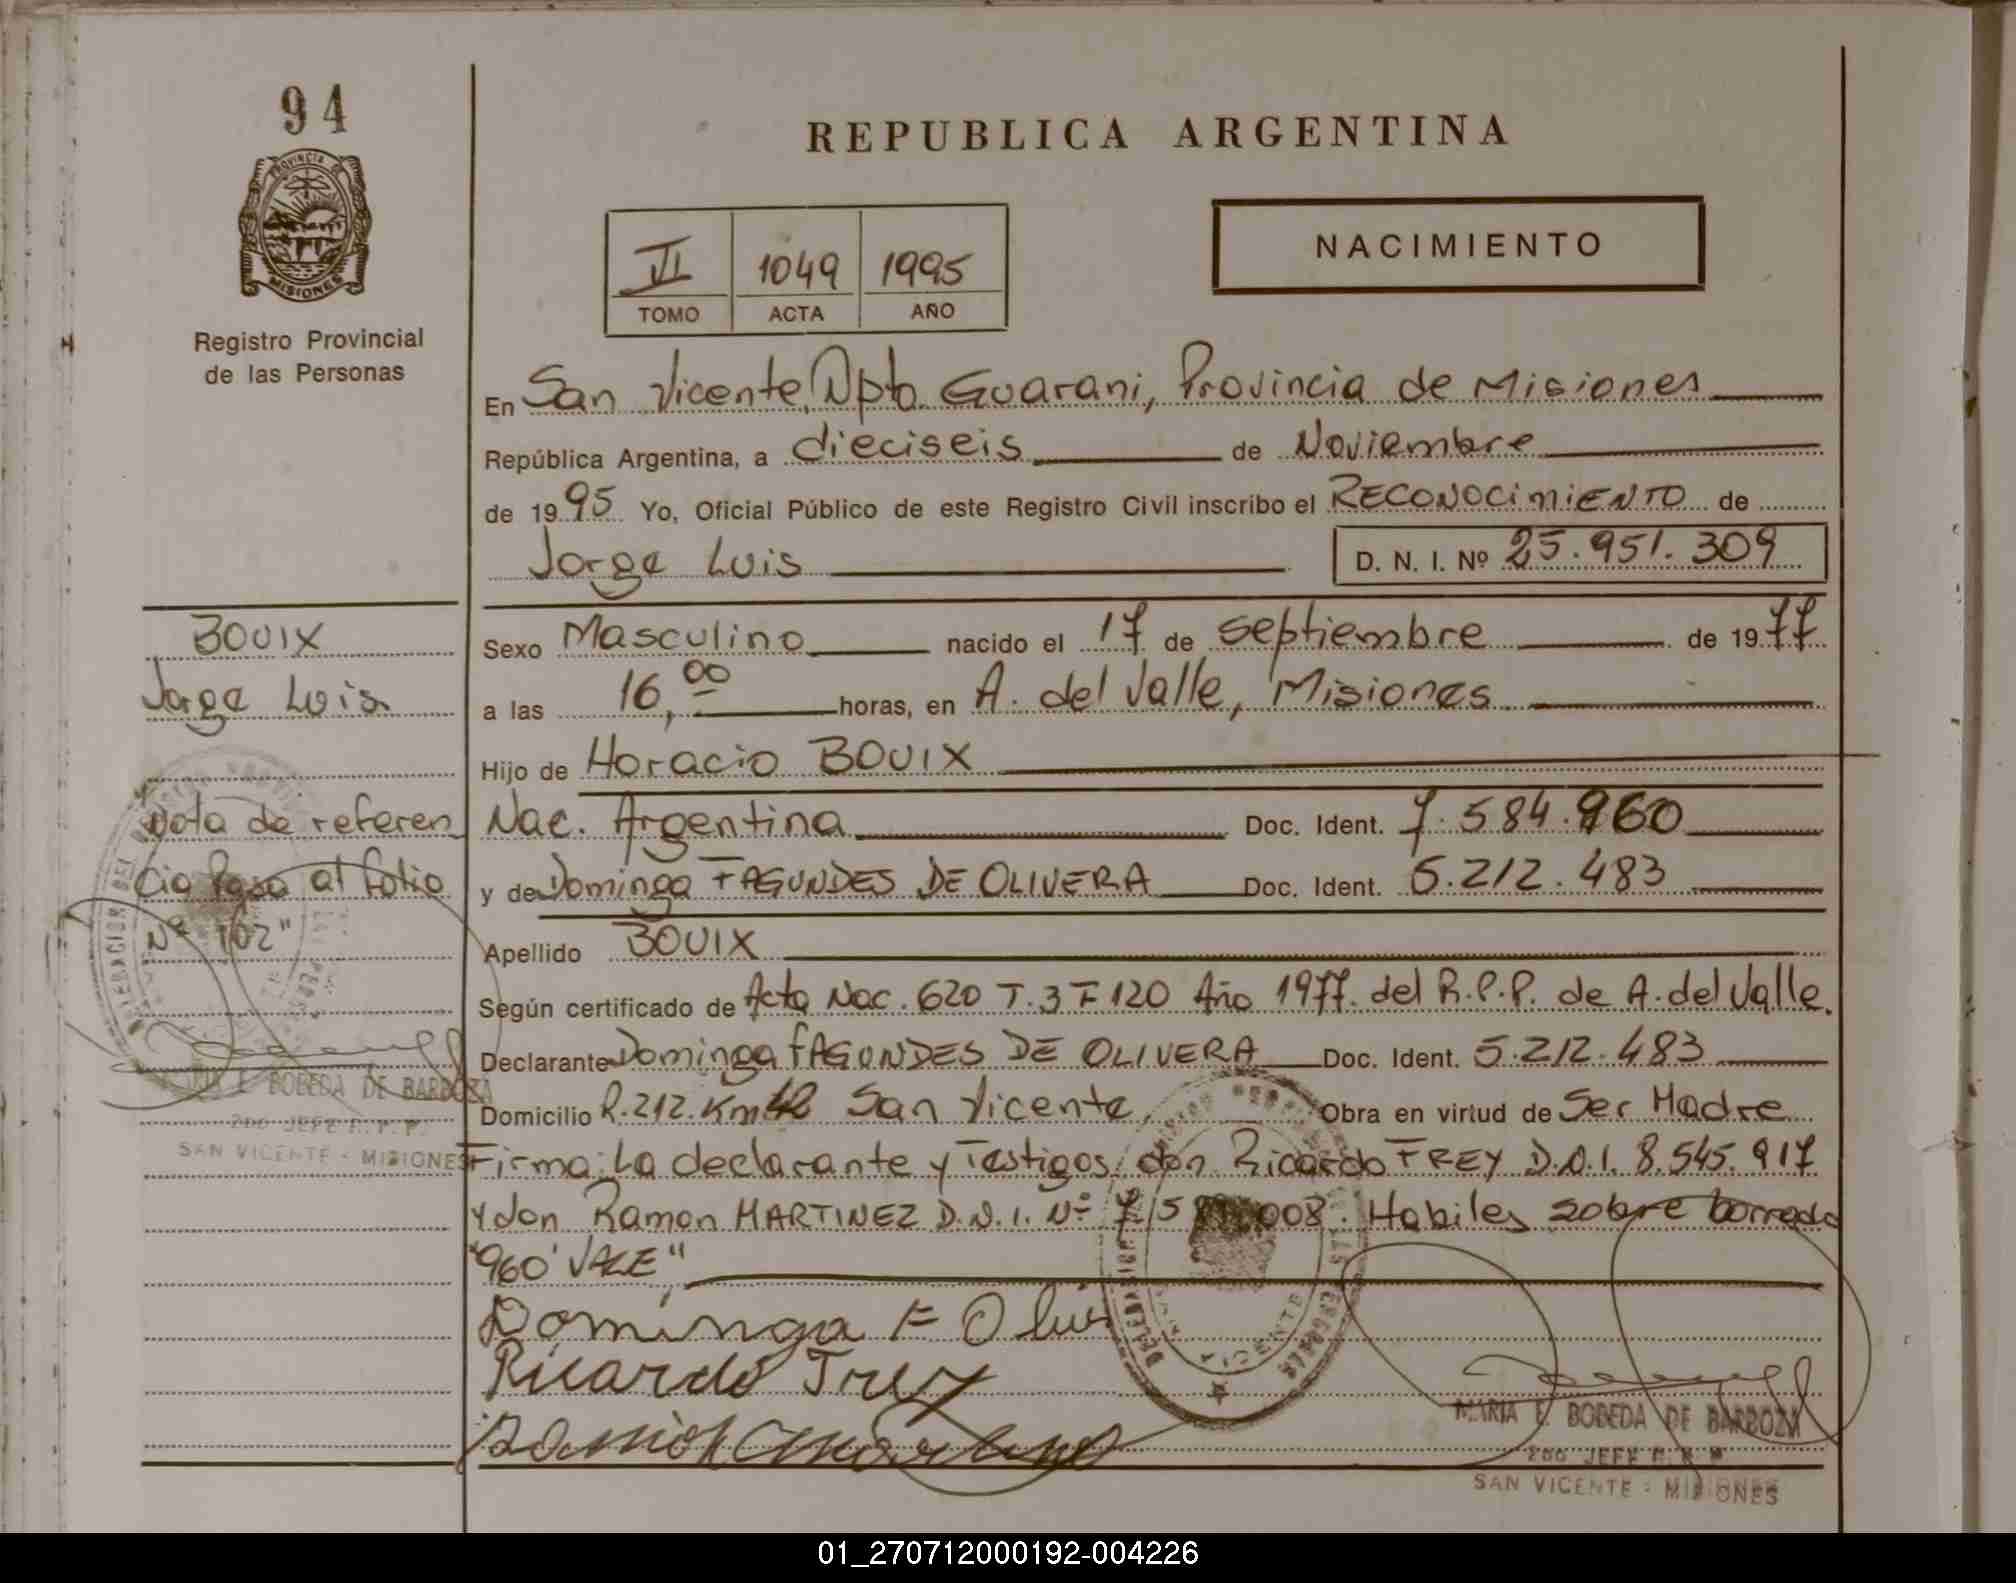 94
PROVINCIA DE
MISIONES
Registro Provincial
de las Personas
REPUBLICA ARGENTINA
VI 1049 1995
TOMO ACTA AÑO
NACIMIENTO
En San Vicente, Dpto. Guarani, Provincia de Misiones
República Argentina, a dieciseis de Noviembre
de 1995 Yo, Oficial Público de este Registro Civil inscribo el RECONOCIMIENTO de
Jorge Luis D. N. I. Nº 25.951.309
BOUIX
Jorge Luis
Nota de referen
cia Pasa al folio
Nº 102"
MARIA E. BOBEDA DE BARBOZA
2do JEFE R. P. P.
SAN VICENTE - MISIONES
Sexo Masculino nacido el 17 de septiembre de 1977
a las 16,00 horas, en A. del Valle, Misiones
Hijo de Horacio BOUIX
Nac. Argentina Doc. Ident. 7.584.960
y de Dominga FAGUNDES DE OLIVERA Doc. Ident. 5.212.483
Apellido BOUIX
Según certificado de Acta Nac. 620 T. 3 F 120 Año 1977. del R.P.P. de A. del Valle.
Declarante Dominga FAGUNDES DE OLIVERA Doc. Ident. 5.212.483
Domicilio R.212. Km San Vicente, Obra en virtud de Ser Madre
Firma: La declarante y Testigos, don Ricardo FREY D.N.I. 8.545.917
y don Ramon MARTINEZ D.N.I. Nº 7.5 008. Habiles sobre borrado
"960 VALE"
Dominga F Oliv
Ricardo Frey
Ramon Martinez
MARIA E. BOBEDA DE BARBOZA
2do JEFE R. P. P.
SAN VICENTE - MISIONES
01_270712000192-004226